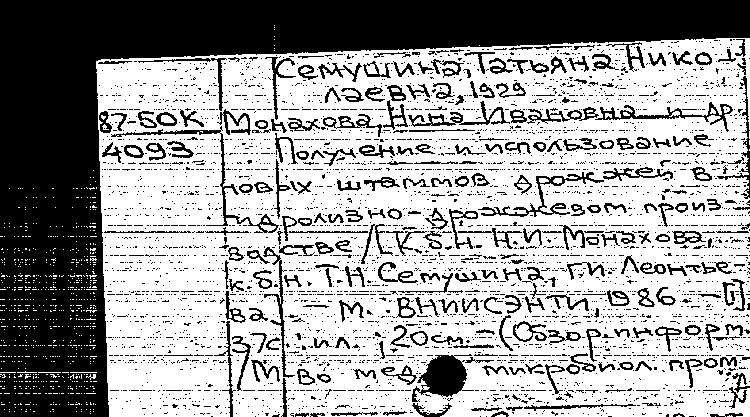 Семушина, Татьяна Нико-
лаевна, 1929
87-50К Монахова, Нина Ивановна и др.
4093 Получение и использование
новых штаммов дрожжей в
гидролизно-дрожжевом произ-
водстве / [К.б.н. Н.И. Монахова,
к.б.н. Т.Н. Семушина, Г.И. Леонтье-
ва]. - М. : ВНИИСЭНТИ, 1986. - [1]
37с. : ил. ; 20см. - (Обзор. информ
/ М-во мед. микробиол. пром.